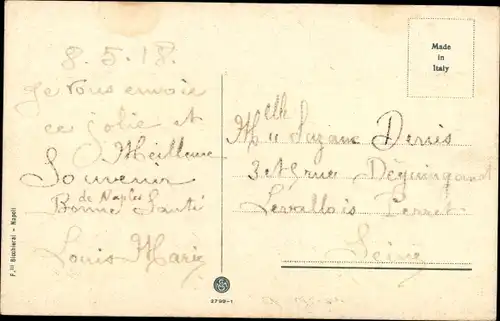 8.5.18.
Je vous envoie
ce jolie et
Meilleure
Souvenir
de Naples
Bonne Santé
Louis Marie
Made
in
Italy
Mlle Suzane Denis
3 rue Déguingand
Levallois Perret
Seine
F.lli Bicchierai - Napoli
2798-1